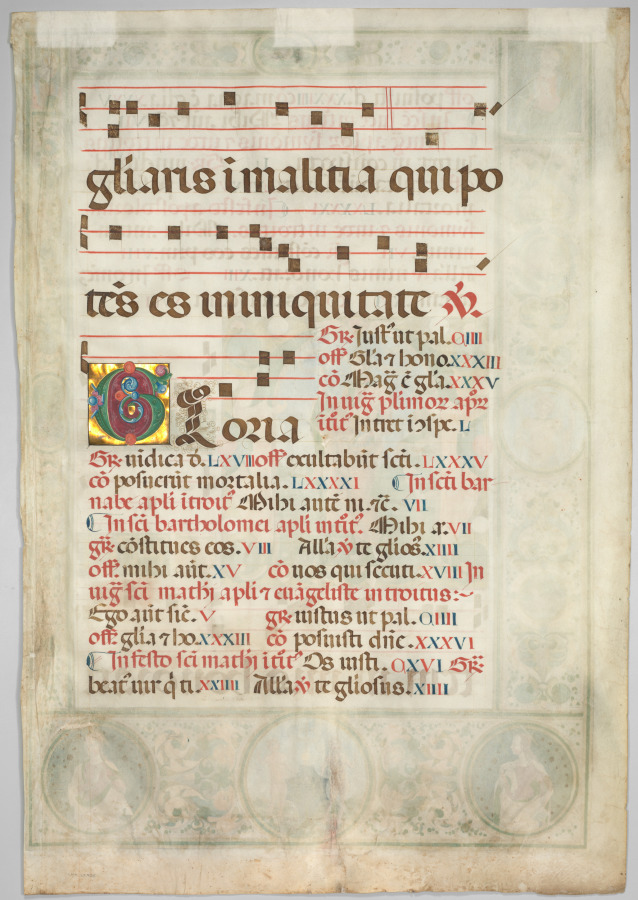 gliaris i malitia qui po
tēs es in iniquitate ℣.
Gloria
GR Just᷒ ut pal. CIIII
off̄ Gl̄a ⁊ hono. XXXIII
cō Mag̅ ē gl̄a. XXXV
In uig̅ plimor apr
itit᷒ Intret i ↄspe. L
GR uīdica d̄. LXVIII off̄ exultabūt scti. LXXXV
cō posuerūt mortalia. LXXXXI In sc̄i bar
nabe apl̄i ītroit᷒ Mihi autē ni. ⁊c̄. VII
In sc̄i bartholomei apl̄i intit᷒. Mihi a. VII
gr̄ cōstitues eos. VIII All'a ℣ te glios᷒. XIIII
off̄. mihi aūt. XV cō uos qui secuti. XVIII In
uig̅ sc̄i mathi apl̄i ⁊ euāgeliste introitus:~
Ego aūt sic̄. V gr̄ iustus ut pal. CIIII
off̄ glīa ⁊ ho. XXXIII cō posuisti dn̄e. XXXVI
In festo sc̄i mathi ītit᷒ Os iusti. CXVI GR
beat᷒ uir q̄ ti. XXIIII All'a ℣ te gliosus. XIIII